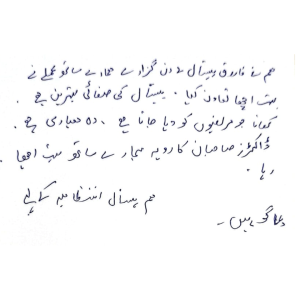 ہم نے فاروق ہسپتال 2 دن گزارے ہمارے ساتھ عملے نے
بہت اچھا تعاون کیا۔ ہسپتال کی صفائی بہترین ہے۔
کھانا جو مریضوں کو دیا جاتا ہے، وہ معیاری ہے۔
ڈاکٹرز صاحبان کا رویہ ہمارے ساتھ بہت اچھا
رہا۔
ہم ہسپتال انتظامیہ کے لیے
دعا گو ہیں۔